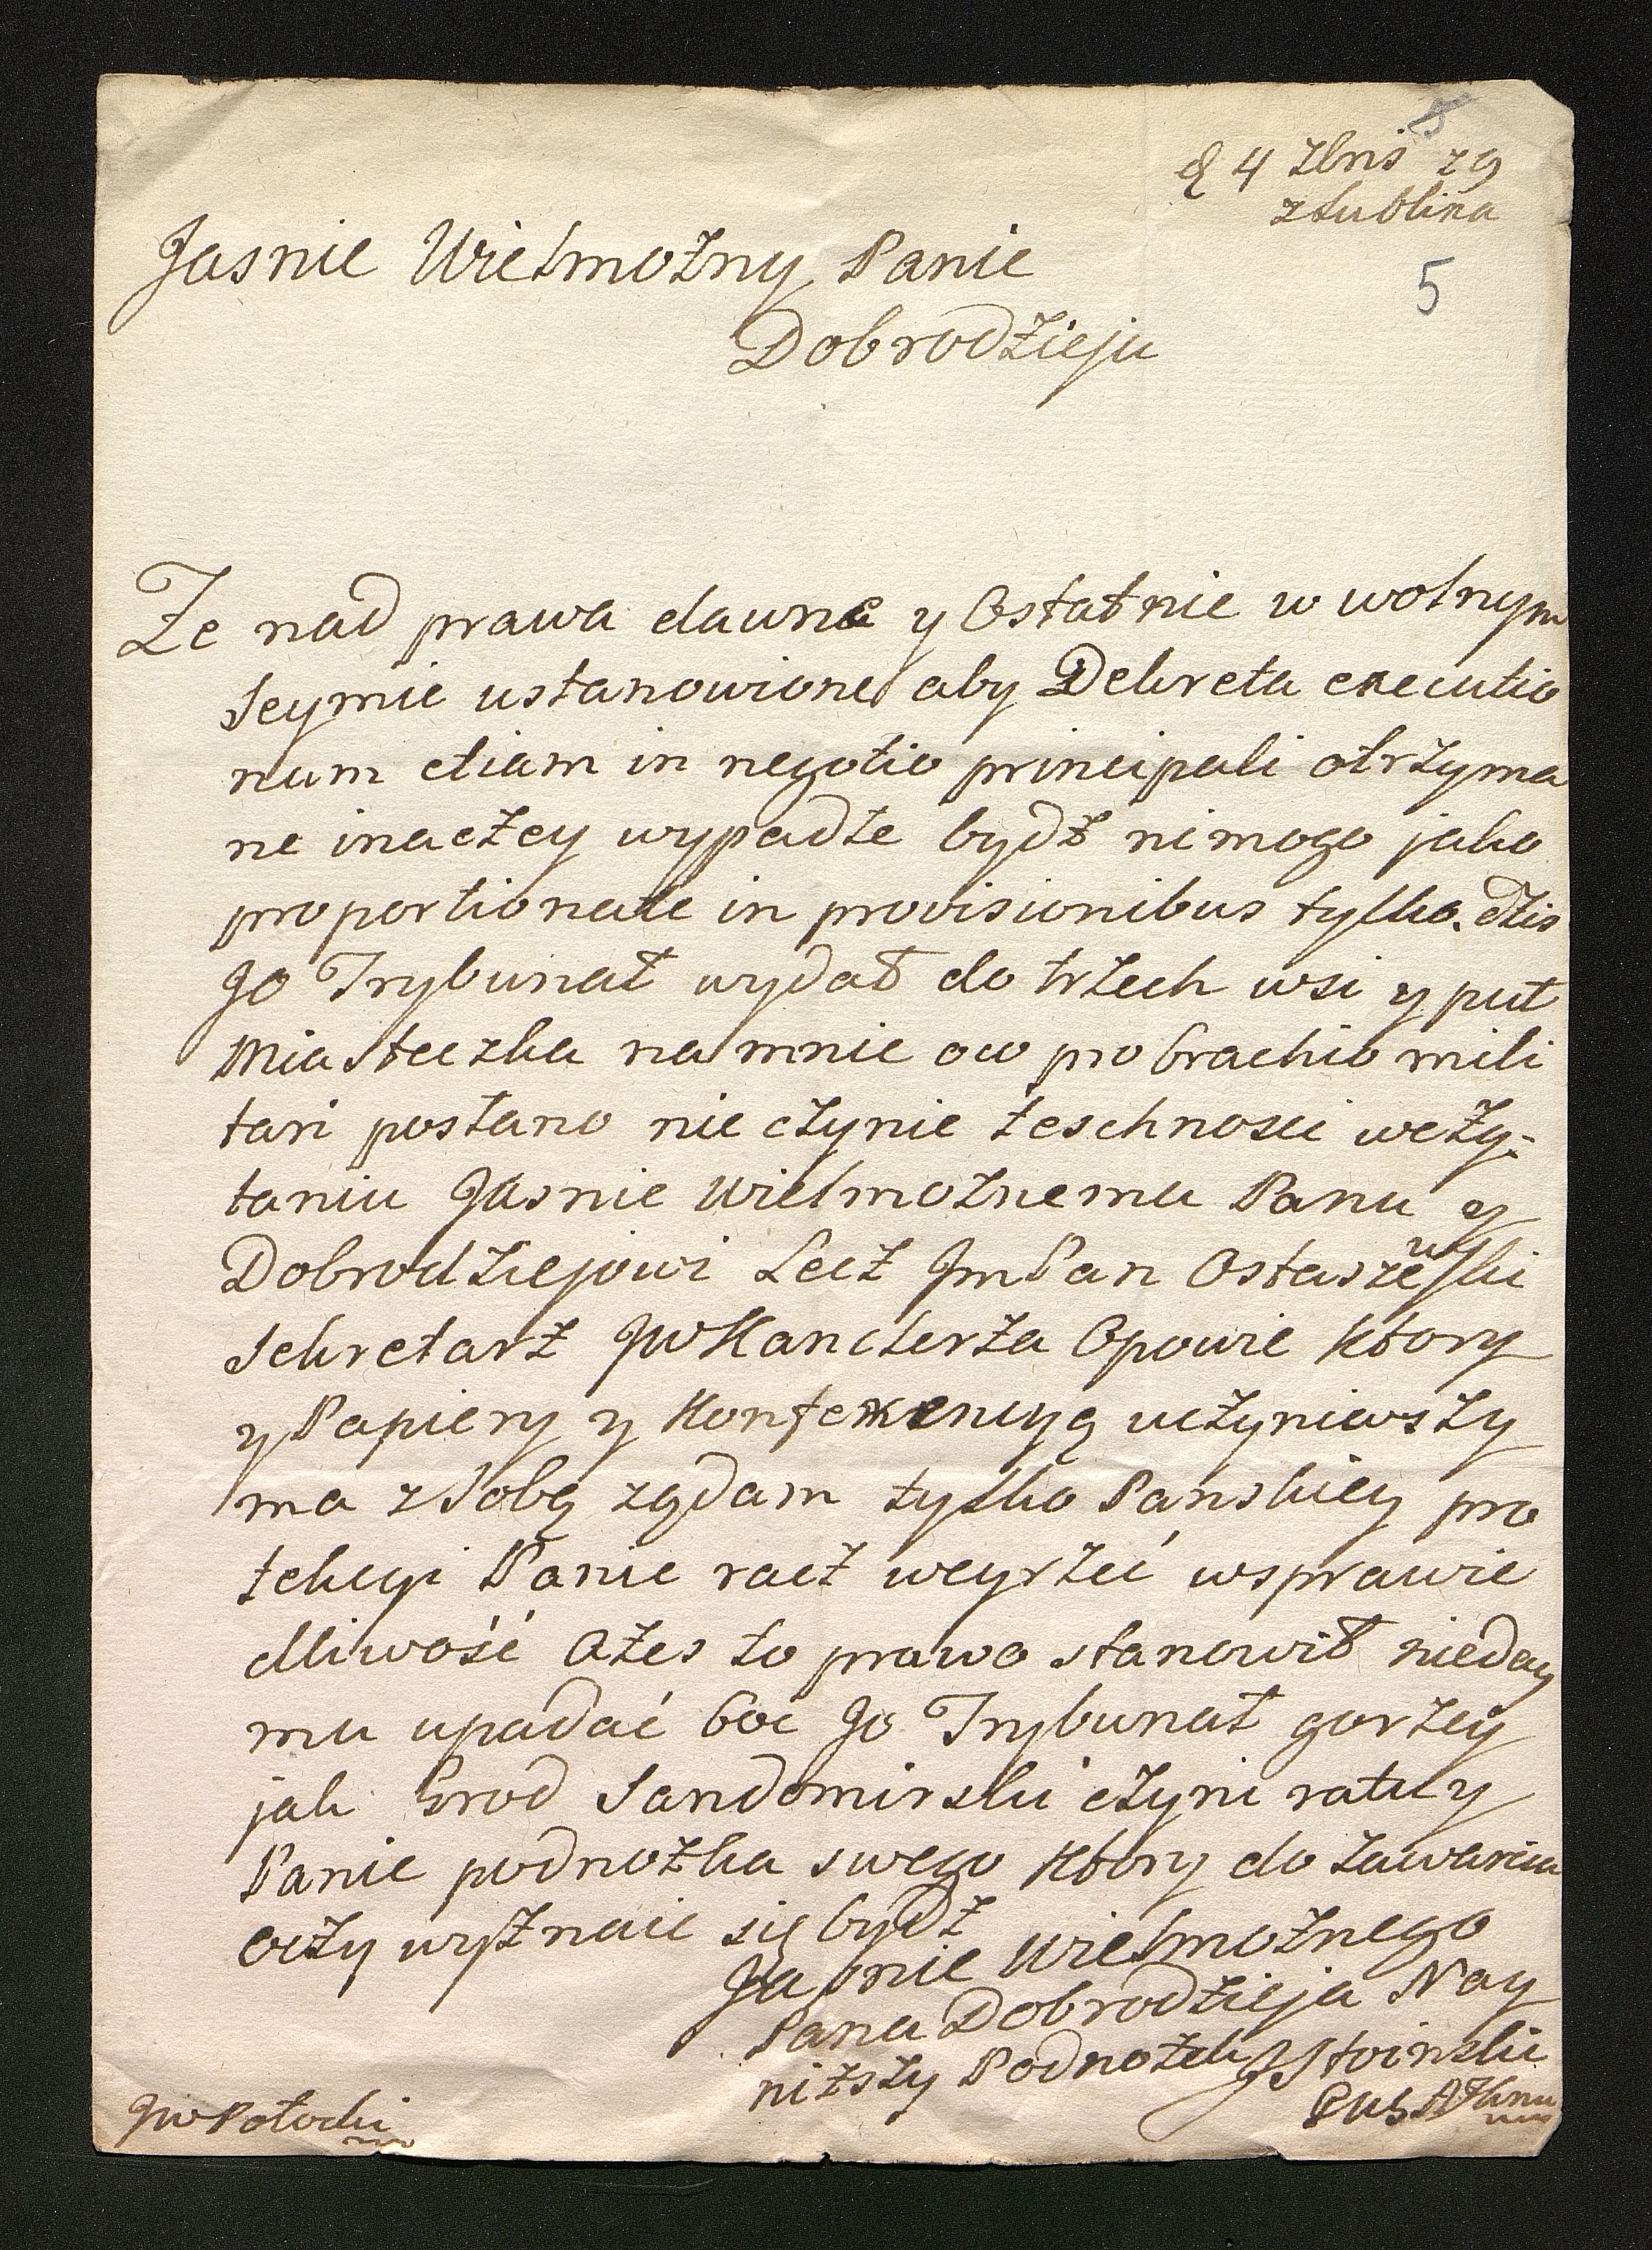 5
d 4 Xbris 79
z Lublina
Jasnie Wielmożny Panie
5
Dobrodzieju
Że nad prawa dawne y Ostatnie w wolnym
Seymie ustanowione aby Dekreta executio
num etiam in negotio principali otrzyma
ne inaczey wypadłe bydź ni mogo jako
proportionate in provisionibus tylko. dzis
JO Trybunał wydał do trzech wsi y puł
Miasteczka na mnie ow pro brachio mili
tari posłano nie czynie teschnosci wczy:
taniu Jasnie Wielmożnemu Panu y
Dobrodziejowi Lecz Jm Pan Ostaszewski
Sekretarz JW Kanclerza Opowie Ktory
y Papiery y Konferencyą uczyniwszy
ma z Sobą ządam tylko Panskiey pro
tekcyi Panie racz weyrzeć w sprawie
dliwość Ażes to prawo stanowił nieday
mu upadać boć JO Trybunał gorzey
jak Grod Sandomirski czyni ratuy
Panie podnożka swego Ktory do zawarcia
oczy wyznaie się bydź
Jasnie Wielmożnego
Pana Dobrodzieja Nay
niższy Podnożek J Stoinski
JW Potocki